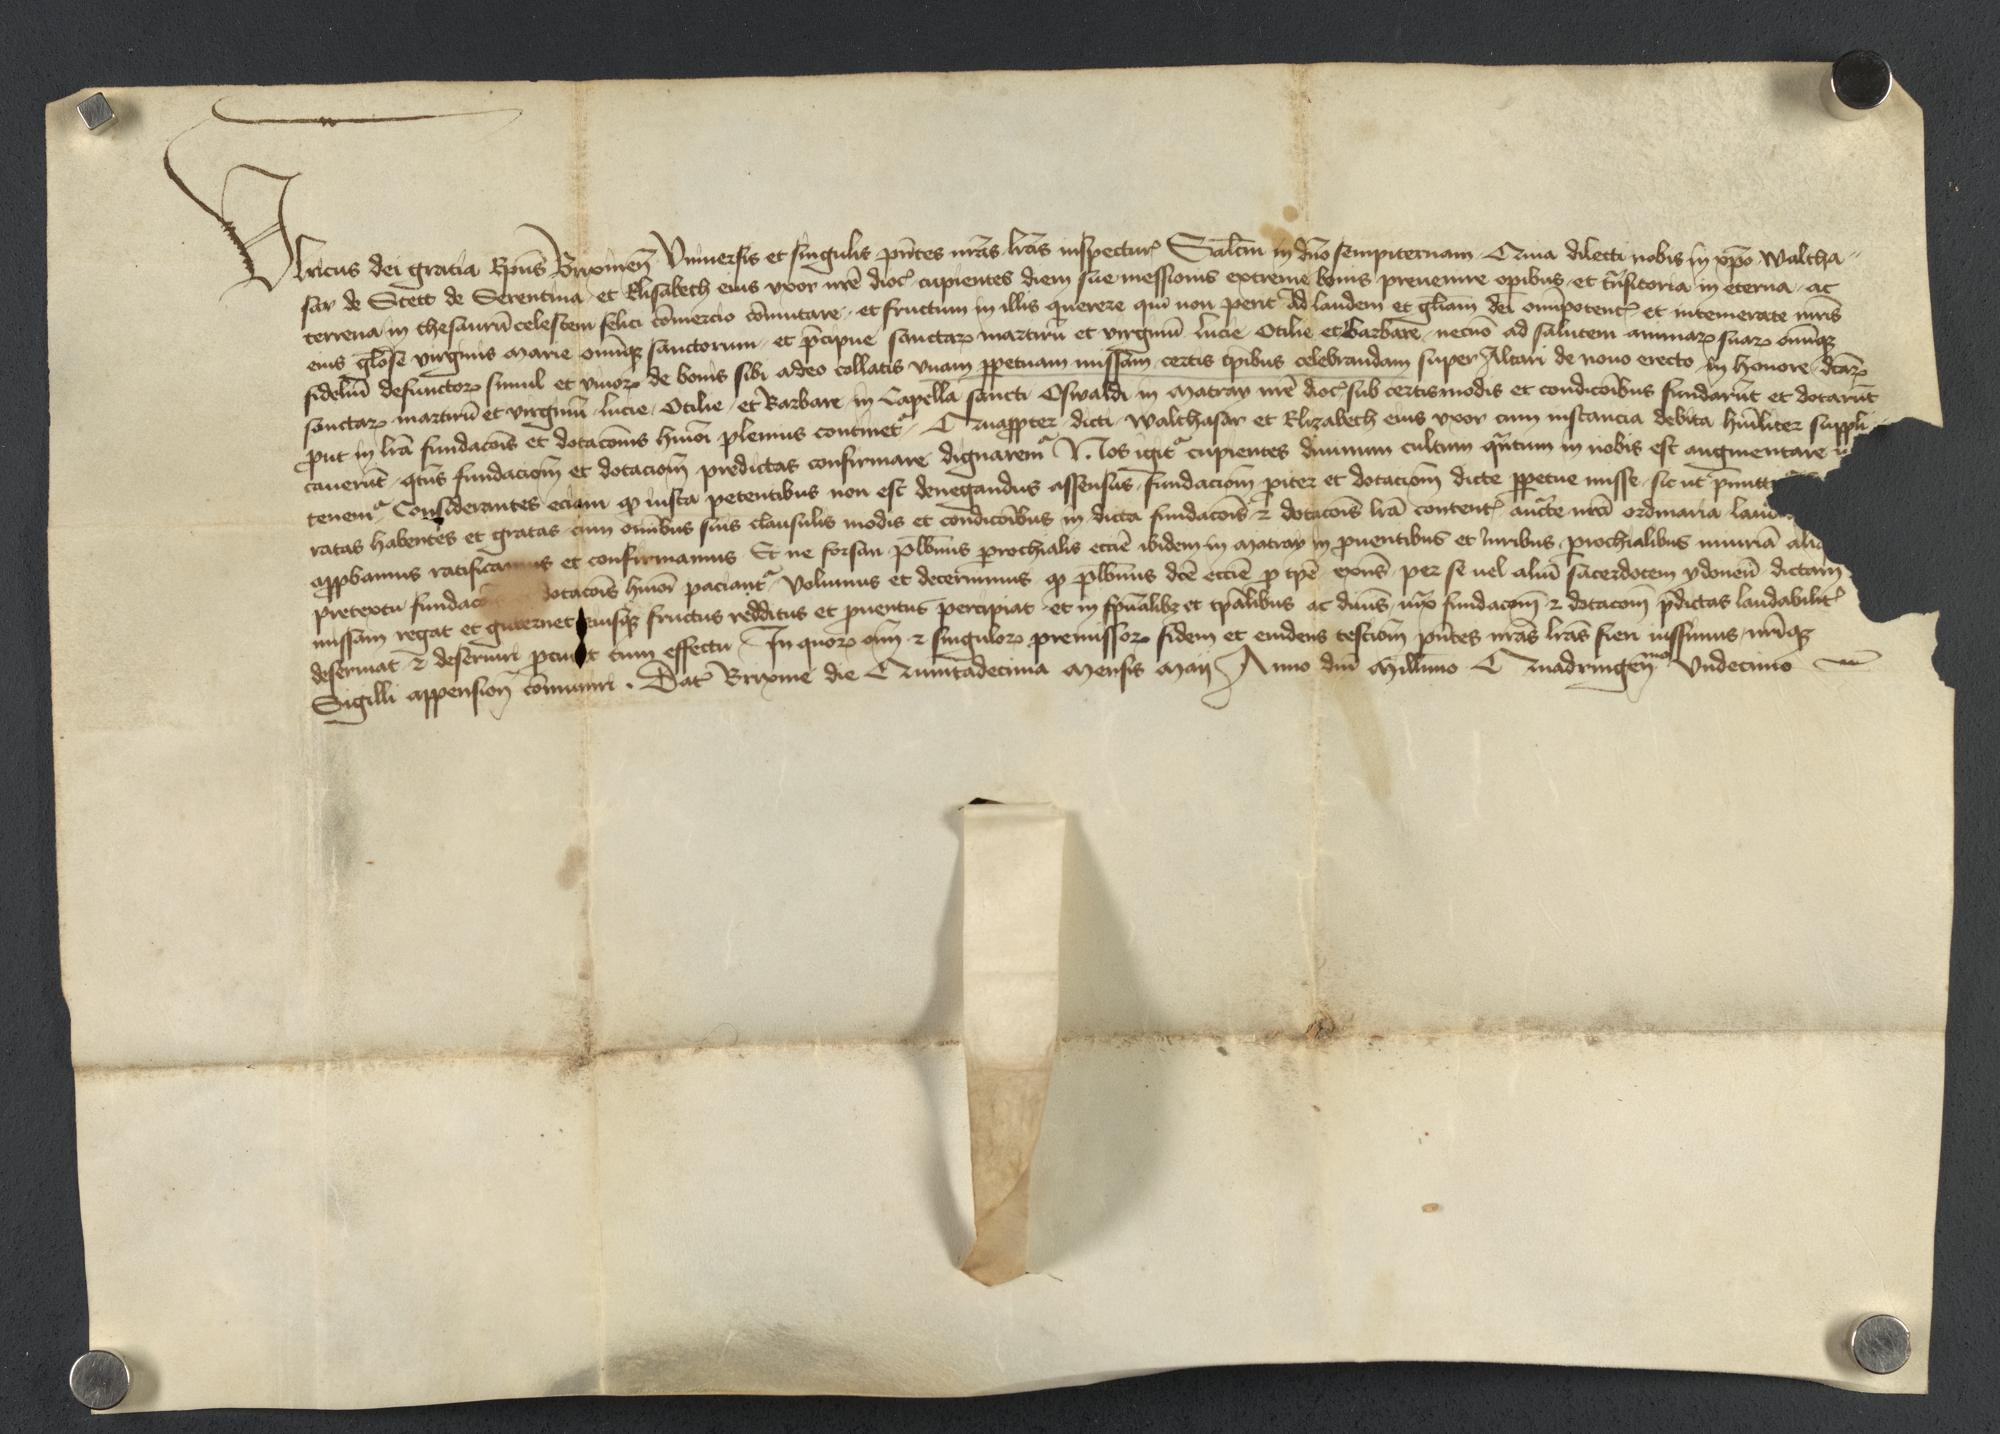 Ulricus dei gratia Ep̄us Brixineñ Uniuersis et singulis pn̄tes nr̄as lr̄as inspectur̄ Salt̄m in dn̄o sempiternam Quia dilecti nobis in xp̄o Waltha-
sar de Stett de Serentina et Elisabeth eius vxor nr̄e dioc̄ cupientes diem sue messionis extreme bonis preuenire operibus et tn̄sitoria in eterna ac
terrena in thesaurū celestem felici cōmercio cōmutare et fructum in illis querere qui non perit Ad laudem et gl̄iam dei om̄ipotent̄ et intemerate mr̄is
eius gl̄ose virginis Marie om̄iq̄ sanctorum et p̄cipue sanctaꝝ martirū et virginū Lucie Otilie et Barbare necnō ad salutem animaꝝ suaꝝ om̄iq̄
fideliū defunctoꝝ simul et viuoꝝ de bonis sibi a deo collatis vnam ꝑpetuam missam certis tp̄ibus celebrandam super Altari de nouo erecto in honore dc̄aꝝ
sanctaꝝ martirū et virginū Lucie Otilie et Barbare in Capella sancti Oswaldi in Matray nr̄e dioc̄ sub certis modis et condicōibus fundarūt et dotarūt
ꝓut in lr̄a fundacōis et dotacōnis hm̄oi plenius continet̄ Quaꝓpter dicti Walthasar et Elizabeth eius vxor cum instancia debita hūiliter suppli
cauerūt qt̄us fundaciōm et dotaciōm predictas confirmare dignarem̄ Nos igit̄ cupientes diuinum cultum qn̄tum in nobis est augmentare
tenem̄ Considerantes eciam ꝙ iusta petentibus non est denegandus assensus fundaciōm ꝑiter et dotaciōm dicte ꝑpetue misse sicut p̄mittit̄
ratas habentes et gratas cum om̄ibus suis clausulis modis et condicōibus in dicta fundacōis ⁊ dotacōis lr̄a content̄ auc̄te nr̄a ordinaria lau
approbamus ratificamus et confirmamus Et ne forsan pl̄bnus ꝑrochialis eccīe ibidem in Matray in ꝓuentibus et iuribus ꝑrochialibus iniuriā ali
pretextu fundacō dotacōis hm̄oi paciant̄ Volumus et decernimus ꝙ pl̄bnus dc̄e eccīe ꝓ tp̄e exn̄s per se uel aliū sacerdotem ydoneū dictam
missam regat et gubernet eiusq̄ fructus redditus et ꝓuentus percipiat et in spūalibꝫ et tp̄alibus ac diuīs iuxᵃ fundacōm ⁊ dotacōm p̄dictas laudabilit̄
deseruiat ⁊ deseruiri ꝓcuret cum effectu In quoꝝ oīm ⁊ singuloꝝ premissoꝝ fidem et euidens testiōm pn̄tes nr̄as lr̄as fieri iussimus nr̄iq̄
Sigilli appensioñ cōmuniri . Dat̄ Brixine die Quintadecima Mensis Maij Anno dn̄i Mill̄imo Quadringenᵐᵒ Vndecimo